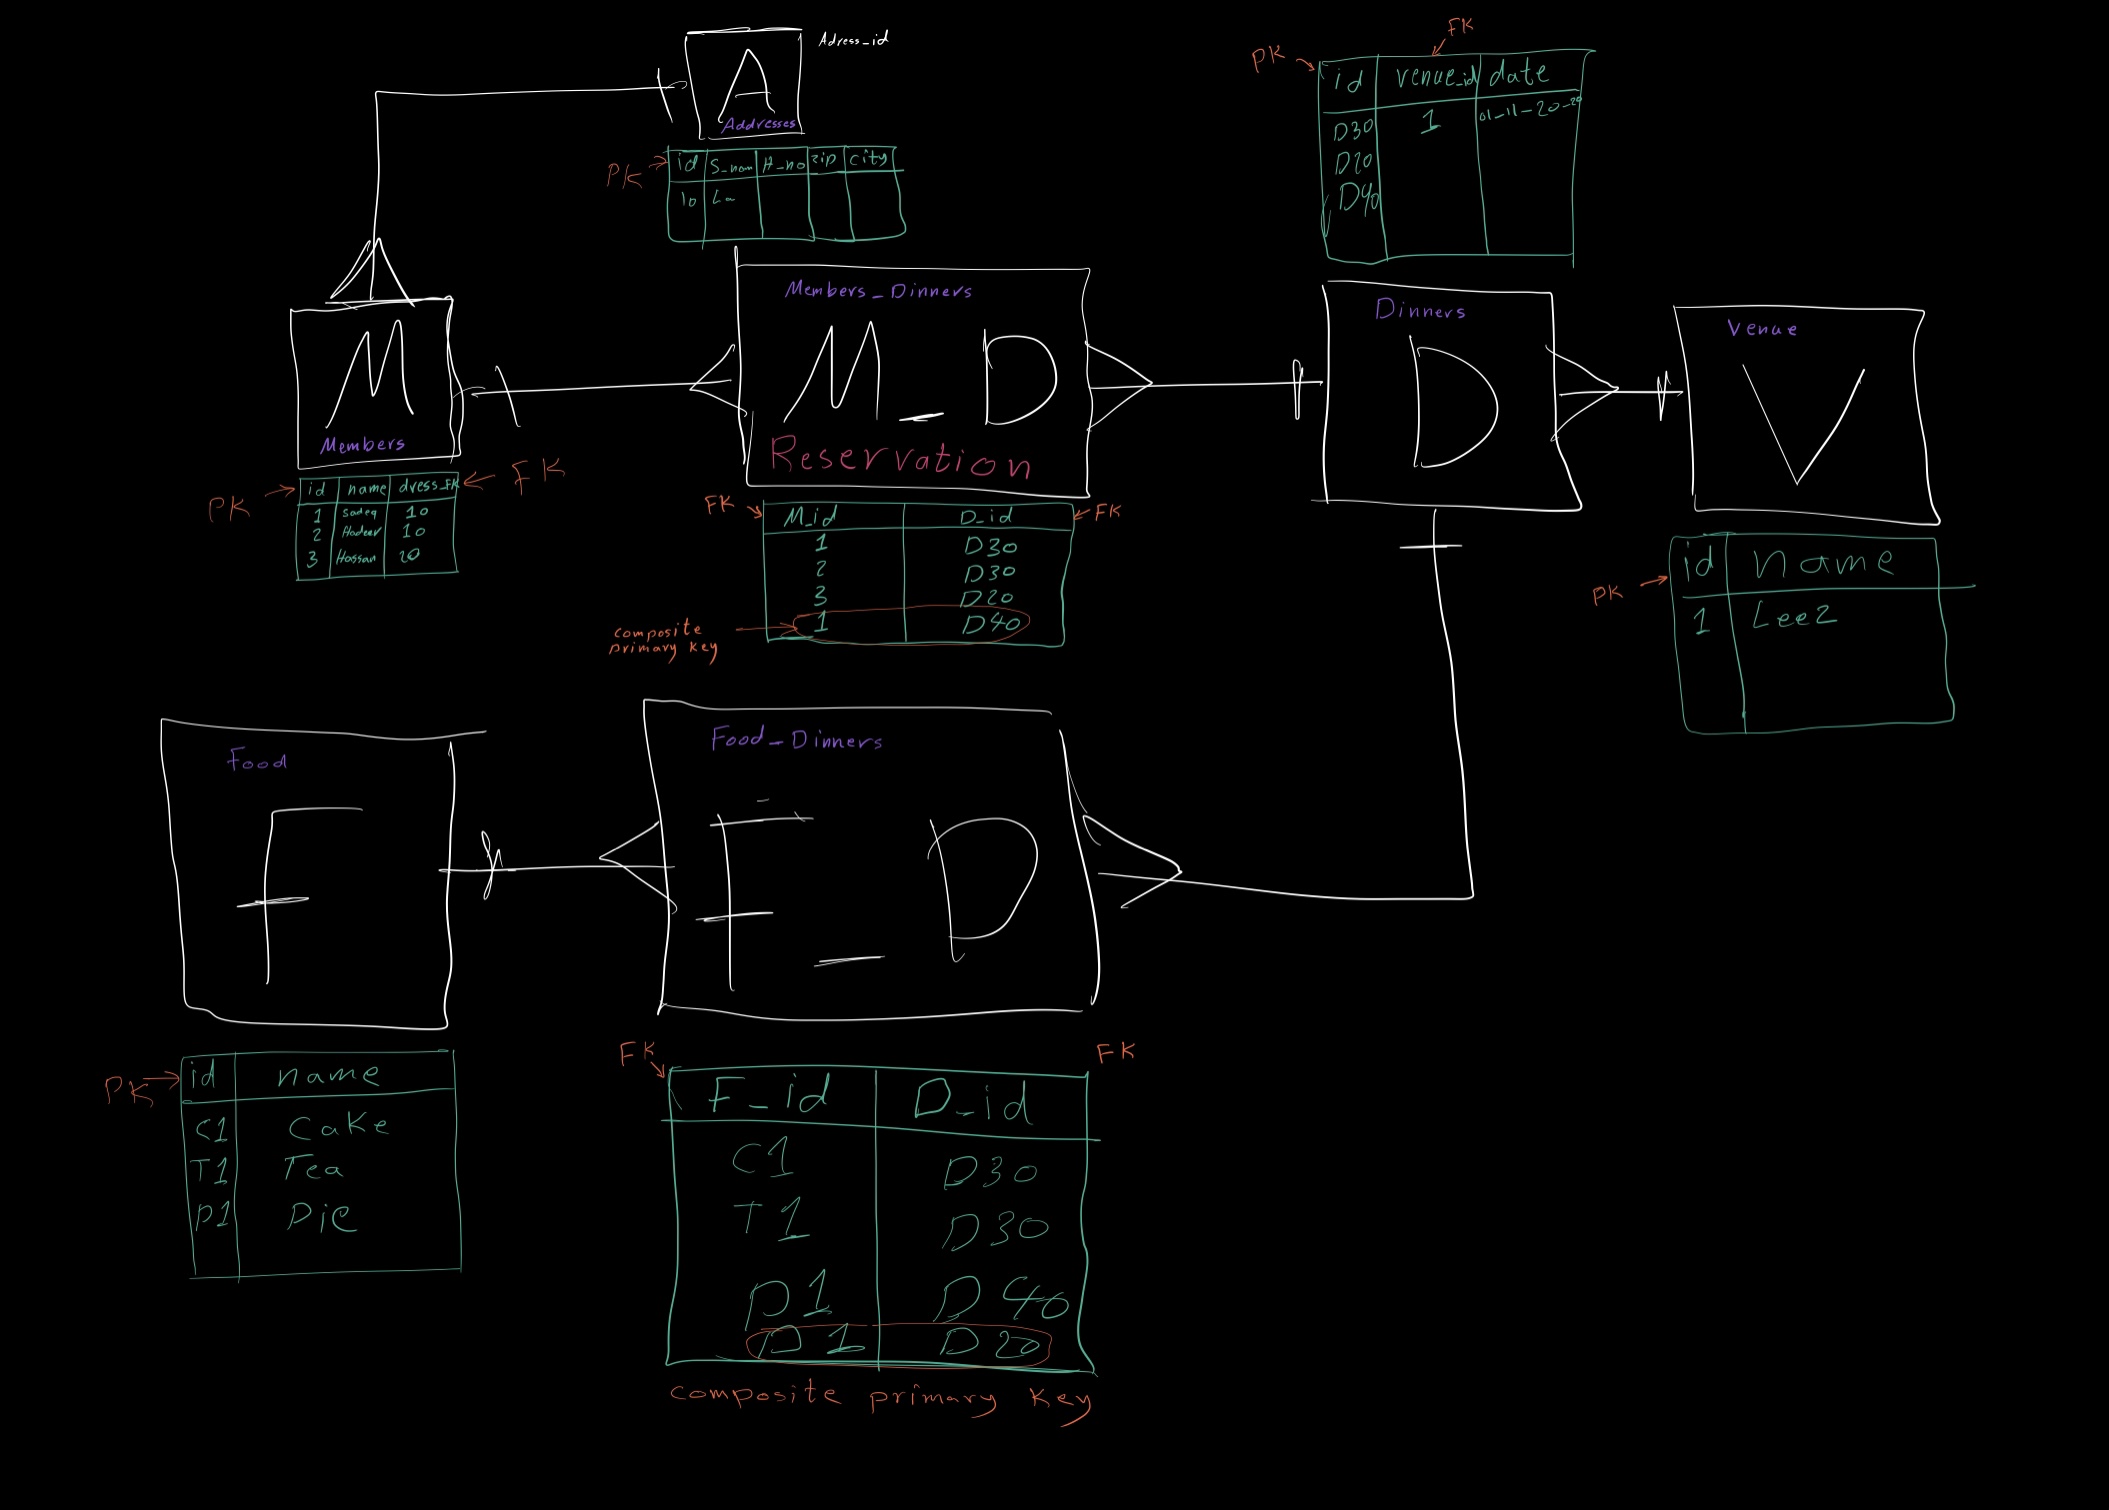 A
Adress_id
Addresses
PK
id S_nam H_no zip city
10 La
FK
PK
id venue_id date
D30 1 01-11-20-20
D20
D40
M
Members
PK
FK
id name dress_FK
1 Sadeq 10
2 Hadeer 10
3 Hassan 20
Members_Dinners
M_D
Reservation
FK
FK
M_id D_id
1 D30
2 D30
3 D20
1 D40
composite
primary key
Dinners
D
Venue
V
PK
id name
1 Lee2
Food
F
PK
id name
C1 Cake
T1 Tea
P1 Pie
Food_Dinners
F_D
FK
FK
F_id D_id
C1 D30
T1 D30
P1 D40
P1 D20
composite primary key